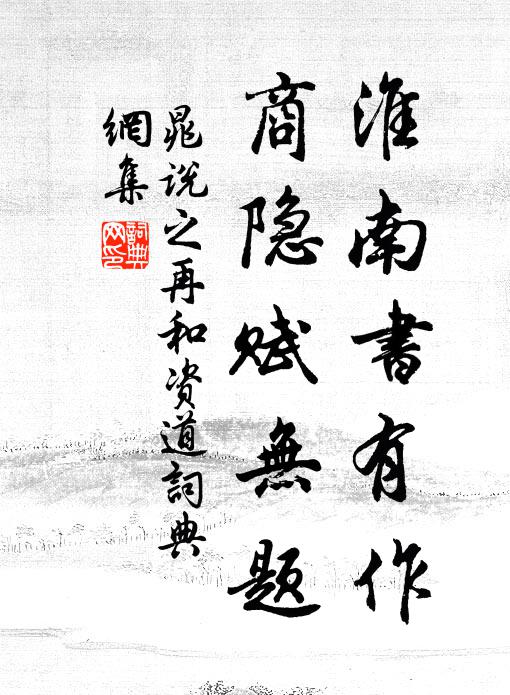 淮南書有作
商隐賦無题
晁说之再和资道詞典
網集
詞典网印